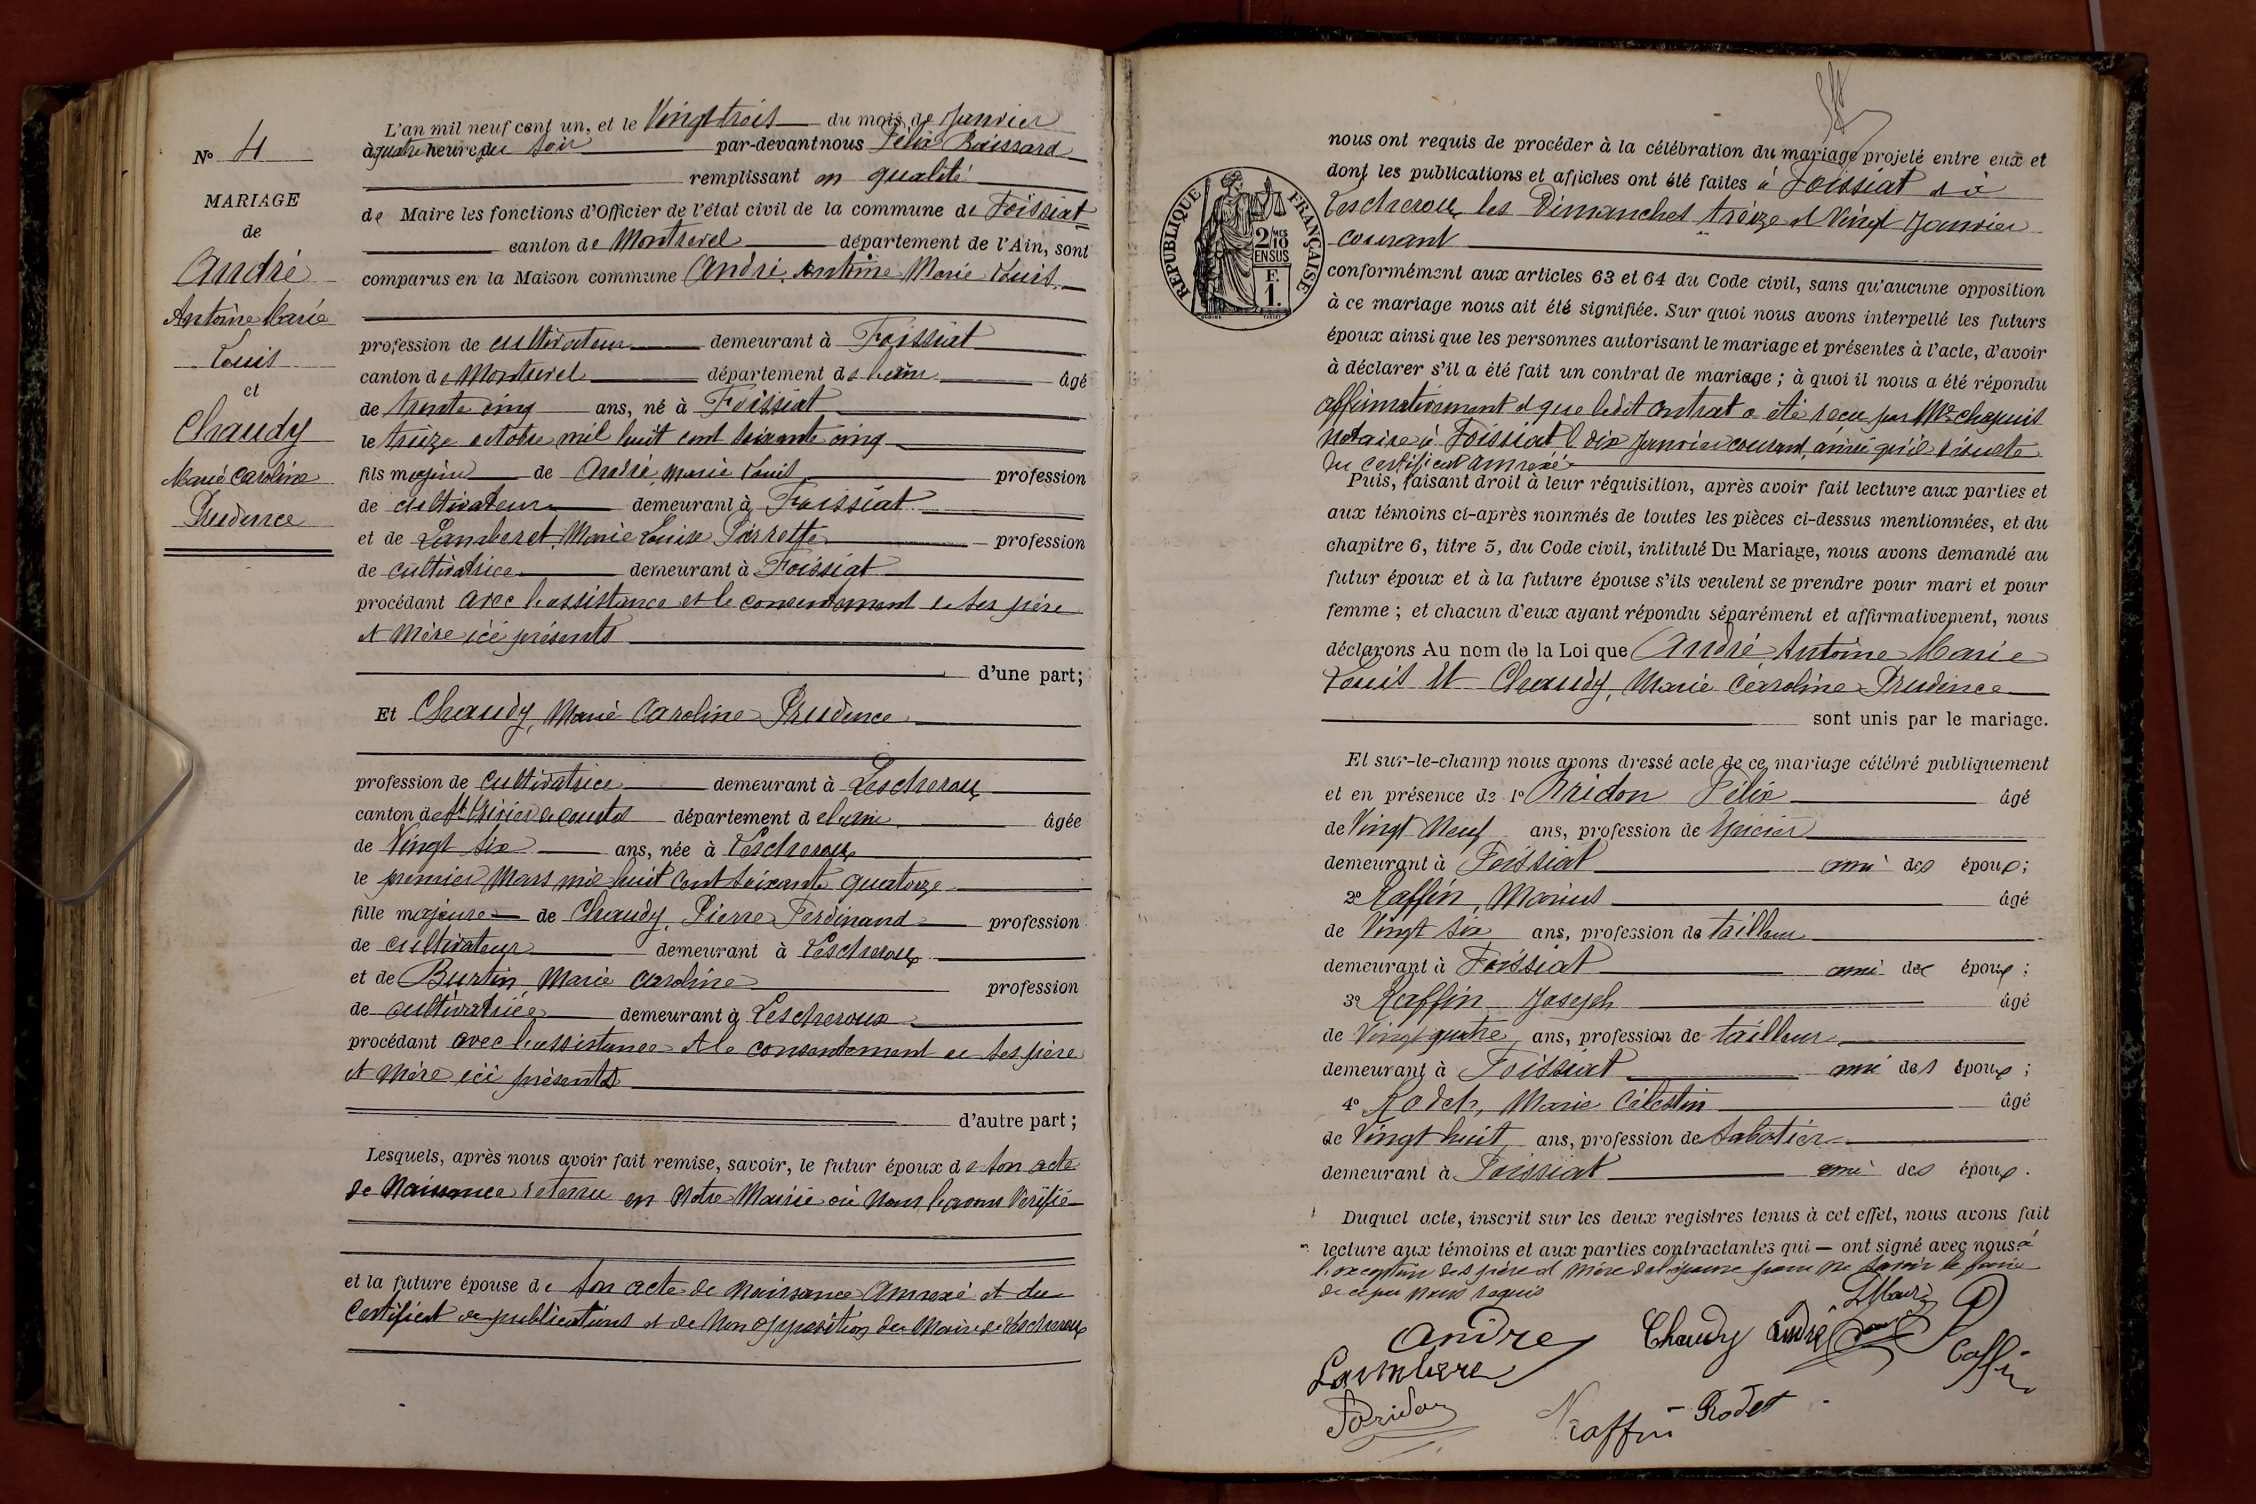 N° 4
MARIAGE
de
André
Antoine Marie
Louis
et
Chaudy
Marie Caroline
Prudence
L'an mil neuf cent un, et le Vingt trois du mois de Janvier
à quatre heure du soir par-devant nous Félix Boissard
remplissant en qualité
de Maire les fonctions d'Officier de l'état civil de la commune de Foissiat
canton de Montrevel département de l'Ain, sont
comparus en la Maison commune André, Antoine Marie Louis
profession de cultivateur demeurant à Foissiat
canton de Montrevel département de l'ain âgé
de trente cinq ans, né à Foissiat
le treize octobre mil huit cent soixante cinq
fils majeur de André, Marie Louis profession
de cultivateur demeurant à Foissiat
et de Lamberet, Marie Louise Pierrette profession
de cultivatrice demeurant à Foissiat
procédant avec l'assistance et le consentement de ses père
et mère ici présents
d'une part;
Et Chaudy, Marie Caroline Prudence
profession de cultivatrice demeurant à Lescheroux
canton de St Trivier de courtes département de l'ain âgée
de Vingt six ans, née à Lescheroux
le premier Mars mil huit cent soixante quatorze
fille majeure de Chaudy, Pierre Ferdinand profession
de cultivateur demeurant à Lescheroux
et de Burtin Marie Caroline profession
de cultivatrice demeurant à Lescheroux
procédant avec l'assistance et le consentement de ses père
et mère ici présents
d'autre part;
Lesquels, après nous avoir fait remise, savoir, le futur époux de son acte
de Naissance retenu en notre Mairie où nous l'avons Vérifié
et la future épouse de son acte de Naissance annexé et du
Certificat de publications et de Non opposition du Maire de Lescheroux
nous ont requis de procéder à la célébration du mariage projeté entre eux et
dont les publications et affiches ont été faites à Foissiat et à
Lescheroux les Dimanches treize et Vingt Janvier
courant
RÉPUBLIQUE FRANÇAISE
2/10
MES
EN SUS
F.
1.
conformément aux articles 63 et 64 du Code civil, sans qu'aucune opposition
à ce mariage nous ait été signifiée. Sur quoi nous avons interpellé les futurs
époux ainsi que les personnes autorisant le mariage et présentes à l'acte, d'avoir
à déclarer s'il a été fait un contrat de mariage; à quoi il nous a été répondu
affirmativement et que ledit contrat a été reçu par Me Chapuis
Notaire à Foissiat le dix Janvier courant, ainsi qu'il résulte
du certificat annexé
Puis, faisant droit à leur réquisition, après avoir fait lecture aux parties et
aux témoins ci-après nommés de toutes les pièces ci-dessus mentionnées, et du
chapitre 6, titre 5, du Code civil, intitulé Du Mariage, nous avons demandé au
futur époux et à la future épouse s'ils veulent se prendre pour mari et pour
femme; et chacun d'eux ayant répondu séparément et affirmativement, nous
déclarons Au nom de la Loi que André Antoine Marie
Louis Et Chaudy, Marie Caroline Prudence
sont unis par le mariage.
Et sur-le-champ nous avons dressé acte de ce mariage célébré publiquement
et en présence de 1° Pridon Félix âgé
de Vingt Neuf ans, profession de épicier
demeurant à Foissiat ami des époux;
2° Raffin, Marius âgé
de Vingt six ans, profession de tailleur
demeurant à Foissiat ami des époux;
3° Raffin Joseph âgé
de Vingt quatre ans, profession de tailleur
demeurant à Foissiat ami des époux;
4° Rodet, Marie Célestin âgé
de Vingt huit ans, profession de sabotier
demeurant à Foissiat ami des époux.
Duquel acte, inscrit sur les deux registres tenus à cet effet, nous avons fait
lecture aux témoins et aux parties contractantes qui — ont signé avec nous à
l'exception des père et mère de l'épouse pour ne savoir le faire
de ce par nous requis
André Chaudy André
Lamberet
Pridon Raffin Rodet